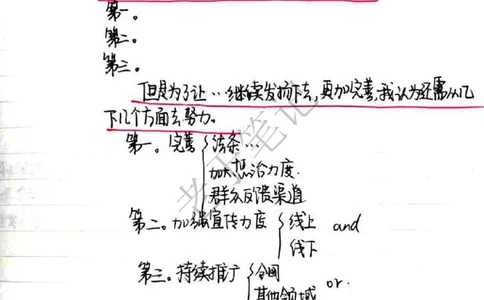 第一。
第二。
第三。
但是为了让…继续发扬下去,更加完善,我认为还需从几
下几个方面去努力。
第一。完善 法条…
加大惩治力度.
群众反馈渠道
第二。加强宣传力度 线上 and
线下
第三.持续推广 全国 or.
其他领域
老王笔记